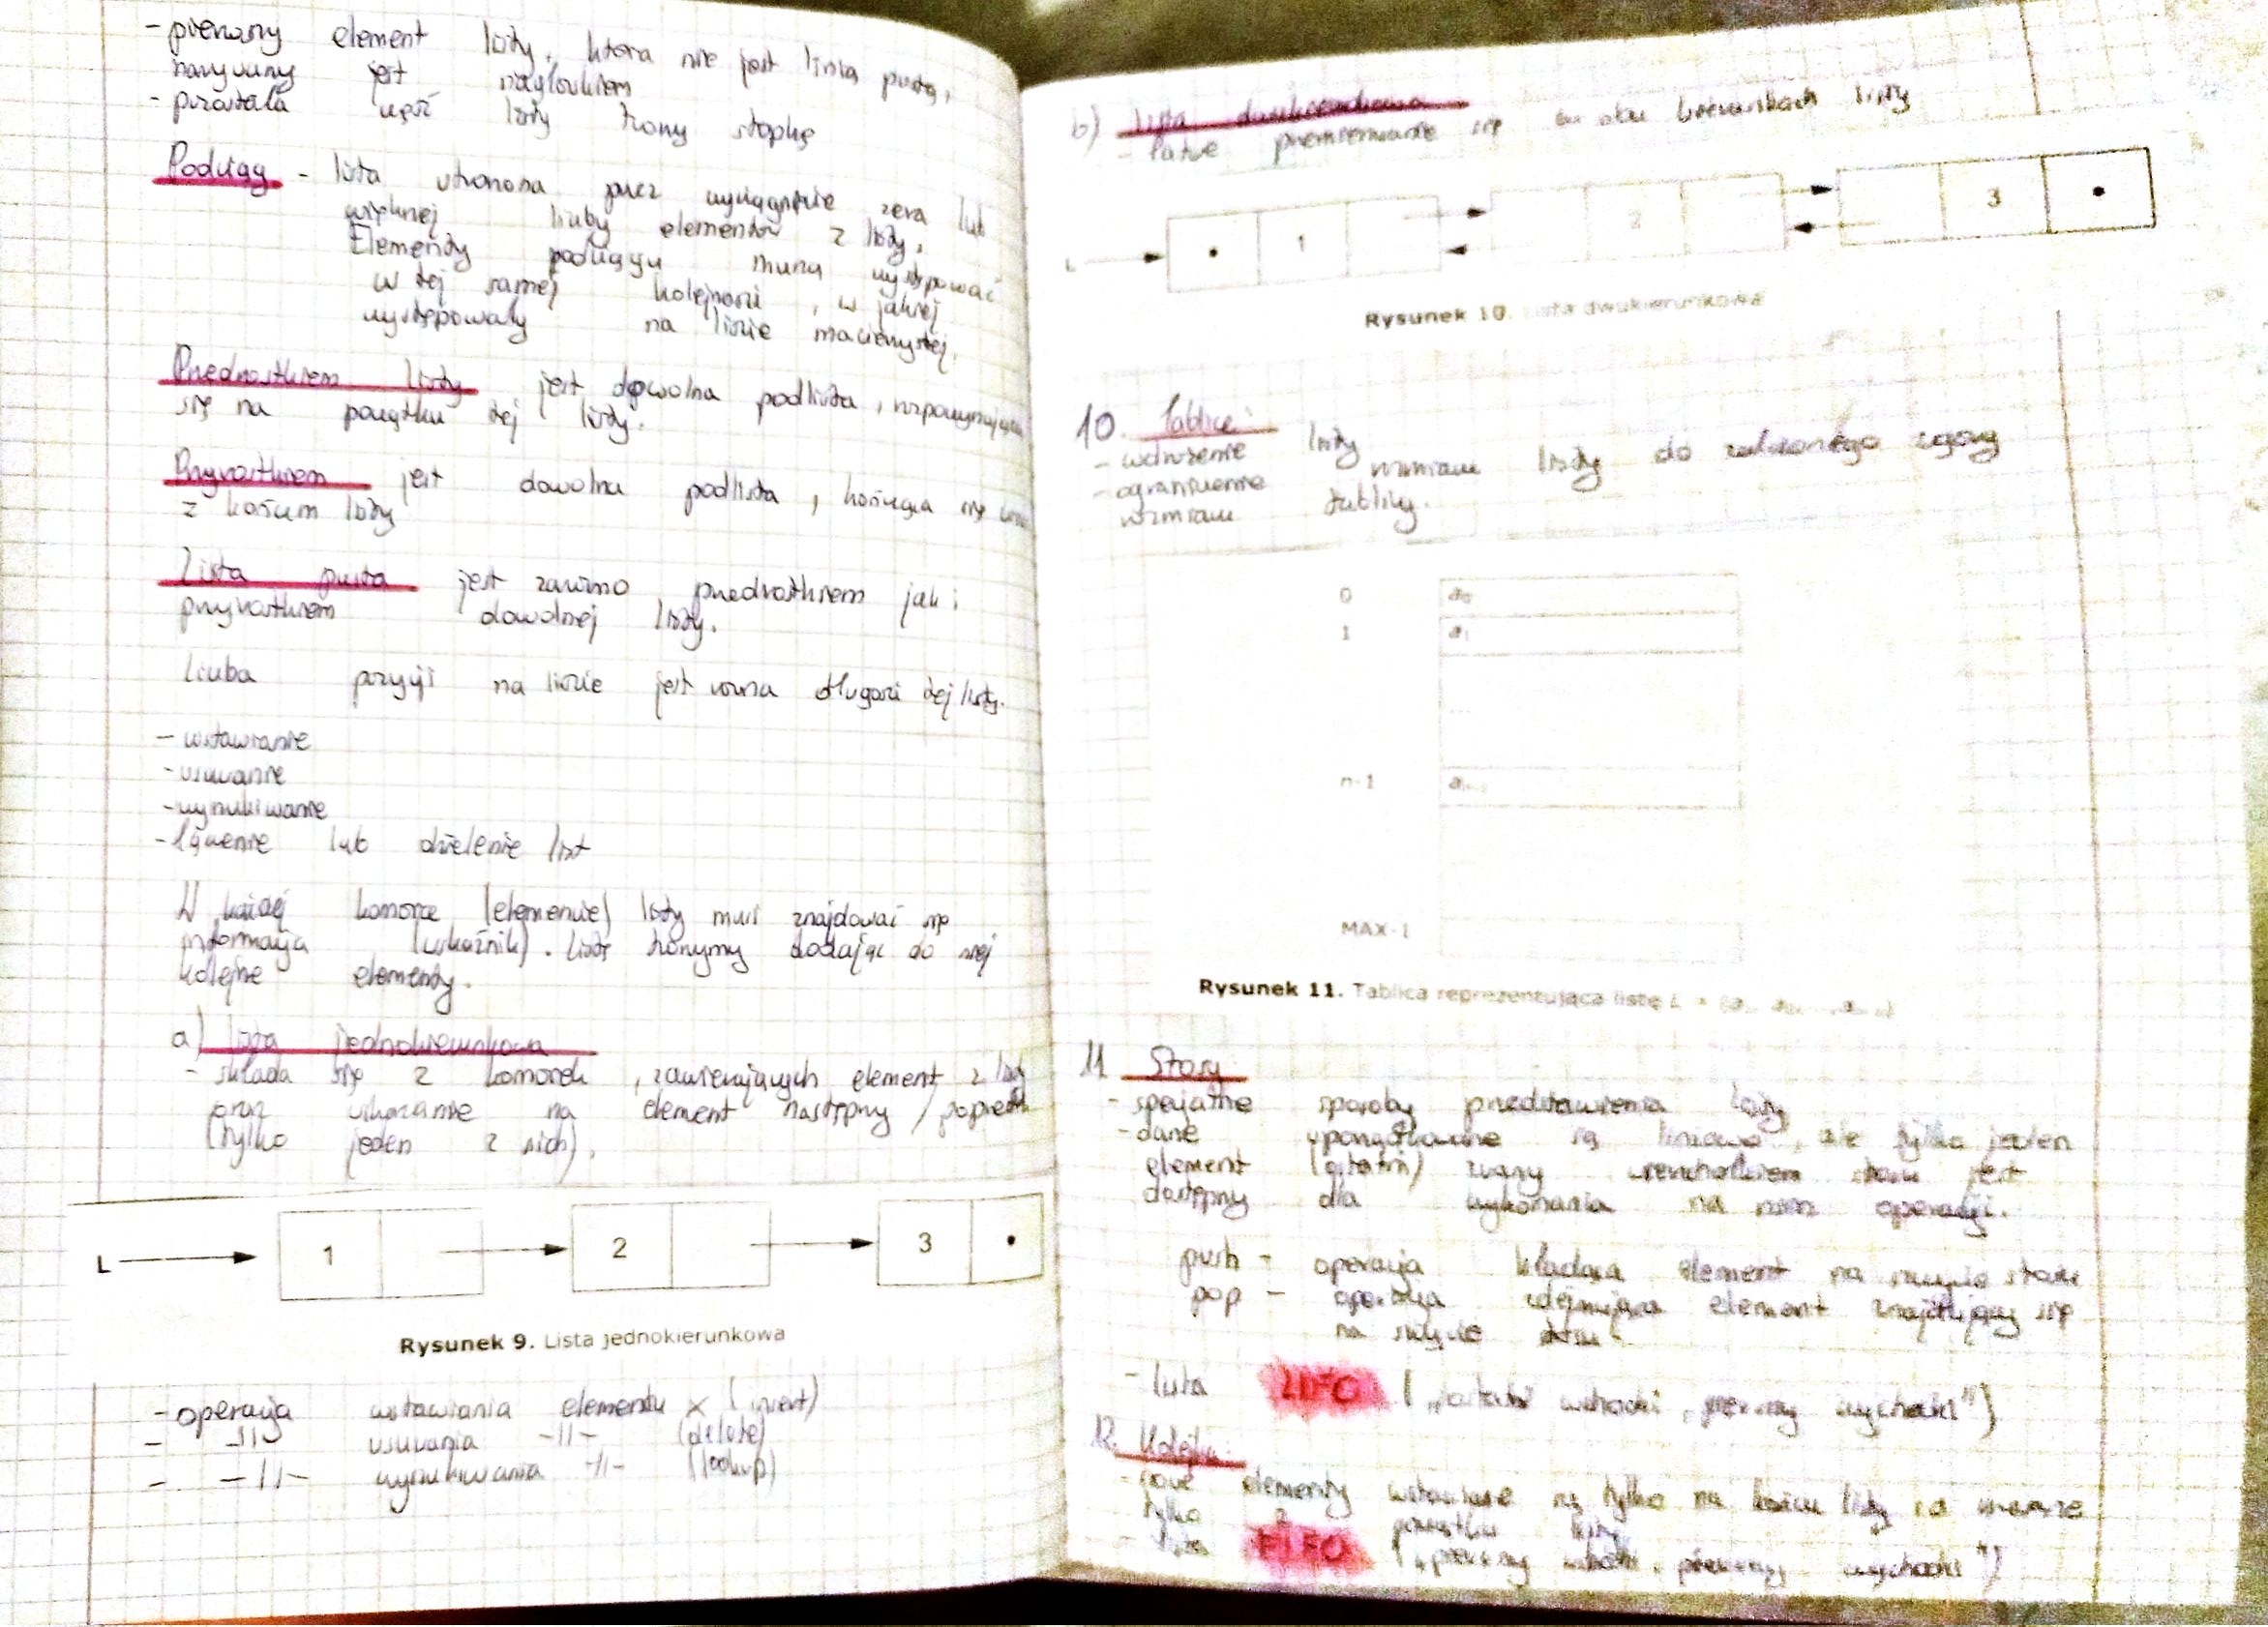 - pierwszy element listy, która nie jest listą pustą,
nazywany jest nagłówkiem
- pozostała część listy tworzy stopkę
Podciąg - lista utworzona przez wyciągnięcie zera lub
większej liczby elementów z listy.
Elementy podciągu muszą występować
w tej samej kolejności, w jakiej
występowały na liście macierzystej.
Przedrostkiem listy jest dowolna podlista, rozpoczynająca
się na początku tej listy.
Przyrostkiem jest dowolna podlista, kończąca się
z końcem listy
Lista pusta jest zarówno przedrostkiem jak i
przyrostkiem dowolnej listy.
Liczba pozycji na liście jest równa długości tej listy.
- wstawianie
- usuwanie
- wyszukiwanie
- łączenie lub dzielenie list
W każdej komórce (elemencie) listy musi znajdować się
informacja (wskaźnik). Listę tworzymy dodając do niej
kolejne elementy.
a) lista jednokierunkowa
- składa się z komórek, zawierających element z listy
oraz wskazanie na element następny / poprzedni
(tylko jeden z nich).
L 1 2 3
Rysunek 9. Lista jednokierunkowa
- operacja wstawiania elementu x (insert)
- -||- usuwania -||- (delete)
- -||- wyszukiwania -||- (lookup)
b) Lista dwukierunkowa
- łatwe przemieszczanie się w obu kierunkach listy
L 1 2 3
Rysunek 10. Lista dwukierunkowa
10. Tablice
- wdrożenie listy
- ograniczenie rozmiaru listy do
rozmiaru tablicy.
0 a₀
1 a₁
...
n-1 aₙ₋₁
MAX-1
Rysunek 11. Tablica reprezentująca listę L =
11. Stosy
- specjalne sposoby przedstawienia listy
- dane uporządkowane są liniowo, ale tylko jeden
element (ostatni) zwany wierzchołkiem stosu jest
dostępny dla wykonania na nim operacji.
push - operacja kładąca element na szczycie stosu
pop - operacja zdejmująca element znajdujący się
na szczycie stosu
- lista LIFO („ostatni wchodzi, pierwszy wychodzi")
12. Kolejki
- nowe elementy wstawiane są tylko na końcu listy, a
tylko z początku listy
- lista FIFO („pierwszy wchodzi, pierwszy wychodzi")